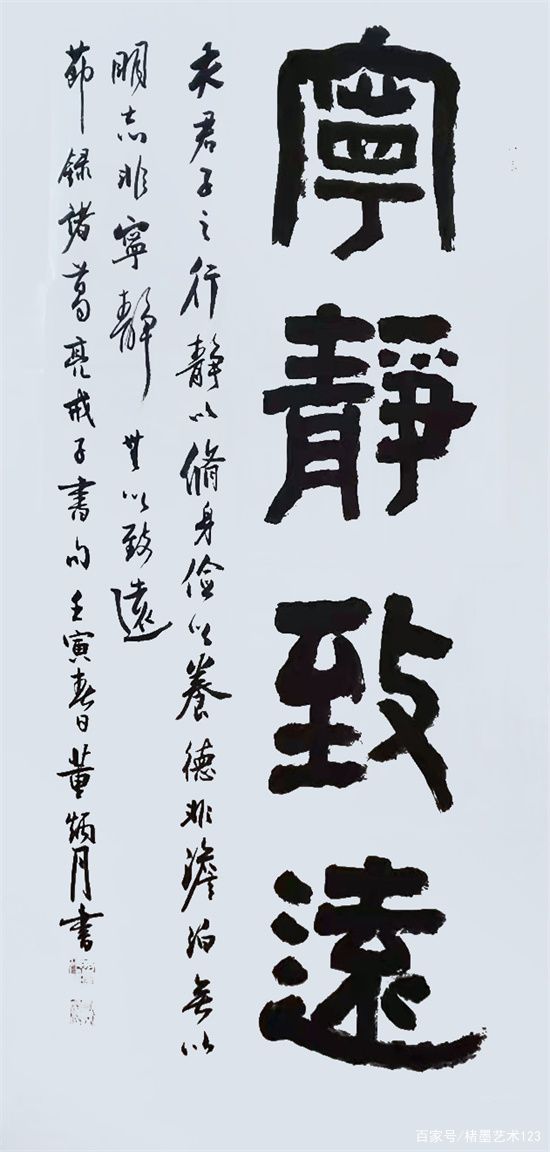 寧靜致遠
夫君子之行靜以脩身儉以養德非澹泊無以
明志非寧靜無以致遠
節録諸葛亮戒子書句壬寅春日董炳月書
百家号/楮墨艺术123